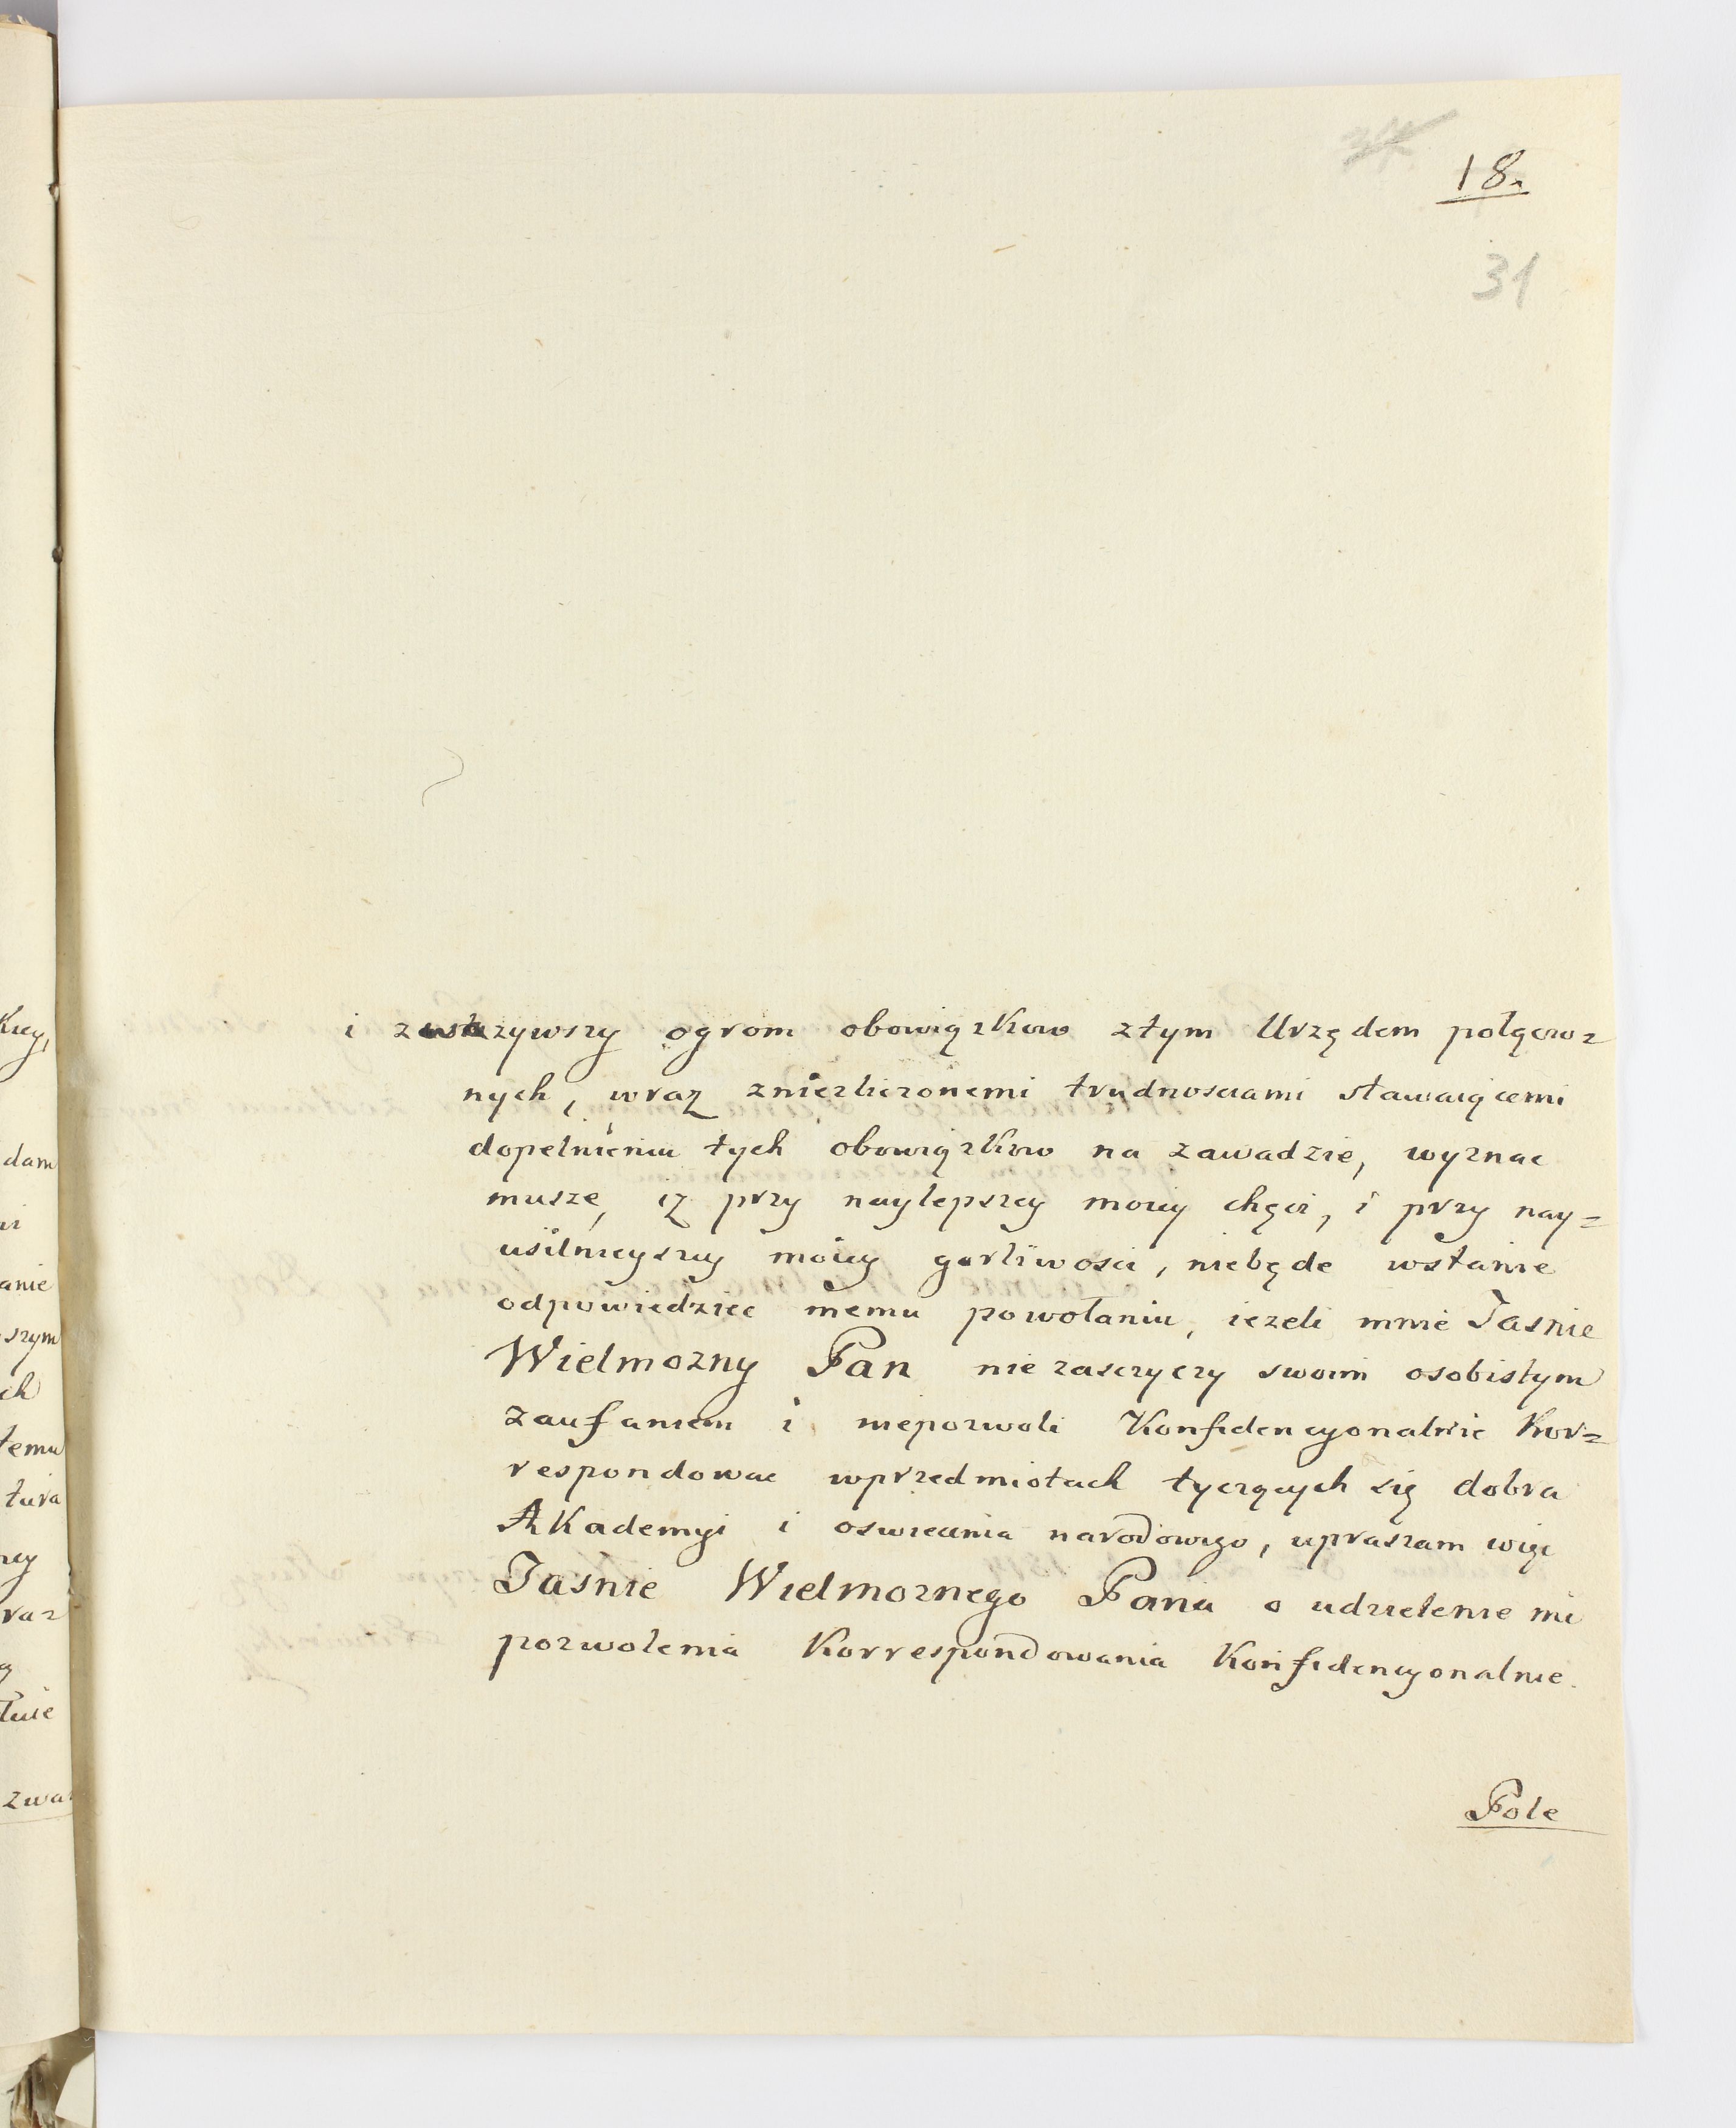 18.
31
i zważywszy ogrom obowiązkow ztym Urzędem połączo=
nych, wraz zniezliczonemi trudnosciami stawaiącemi
dopełnieniu tych obowiązkow na zawadzie, wyznac
muszę, iz przy naylepszey moiey chęci, i przy nay=
usilnieyszey moiey gorliwosci, niebęde wstanie
odpowiedziec memu powołaniu, iezeli mnie Jasnie
Wielmozny Pan niezaszczyczy swoim osobistym
zaufaniem i niepozwoli Konfidencyonalnie Kor=
respondowac wprzedmiotach tyczących się dobra
Akademyi i oswiecenia narodowego, upraszam więc
Jasnie Wielmoznego Pana o udzielenie mi
pozwolenia Korrespondowania Konfidencyonalnie.
Pole